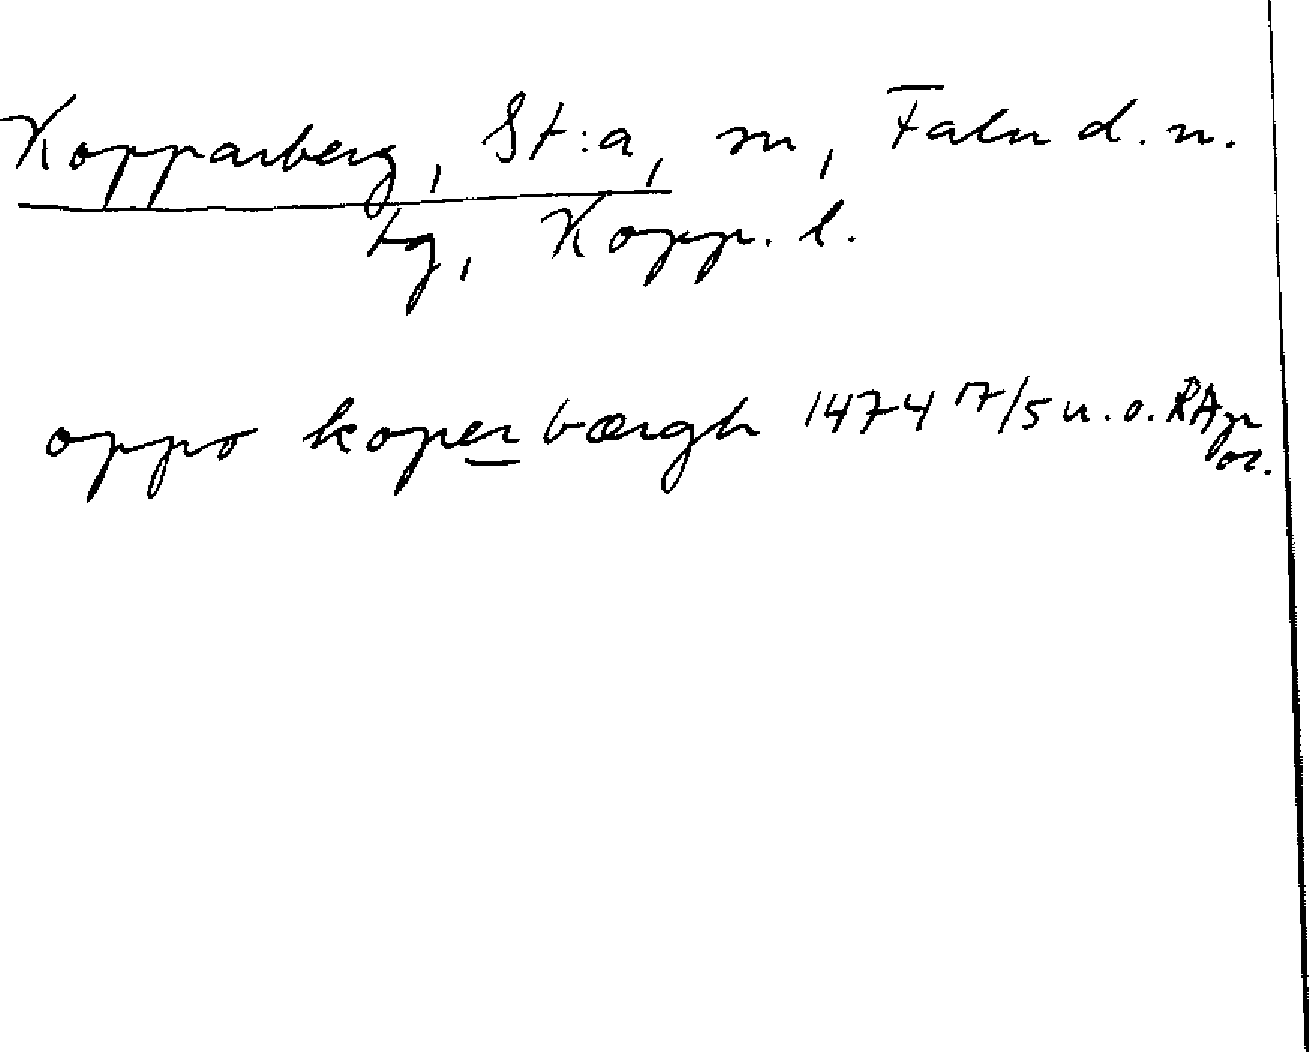 Kopparberg, St:a, sn, Falu d.n.
tg, Kopp. l.
oppo koperbærgh 1474 17/5 u.o. RAp
or.